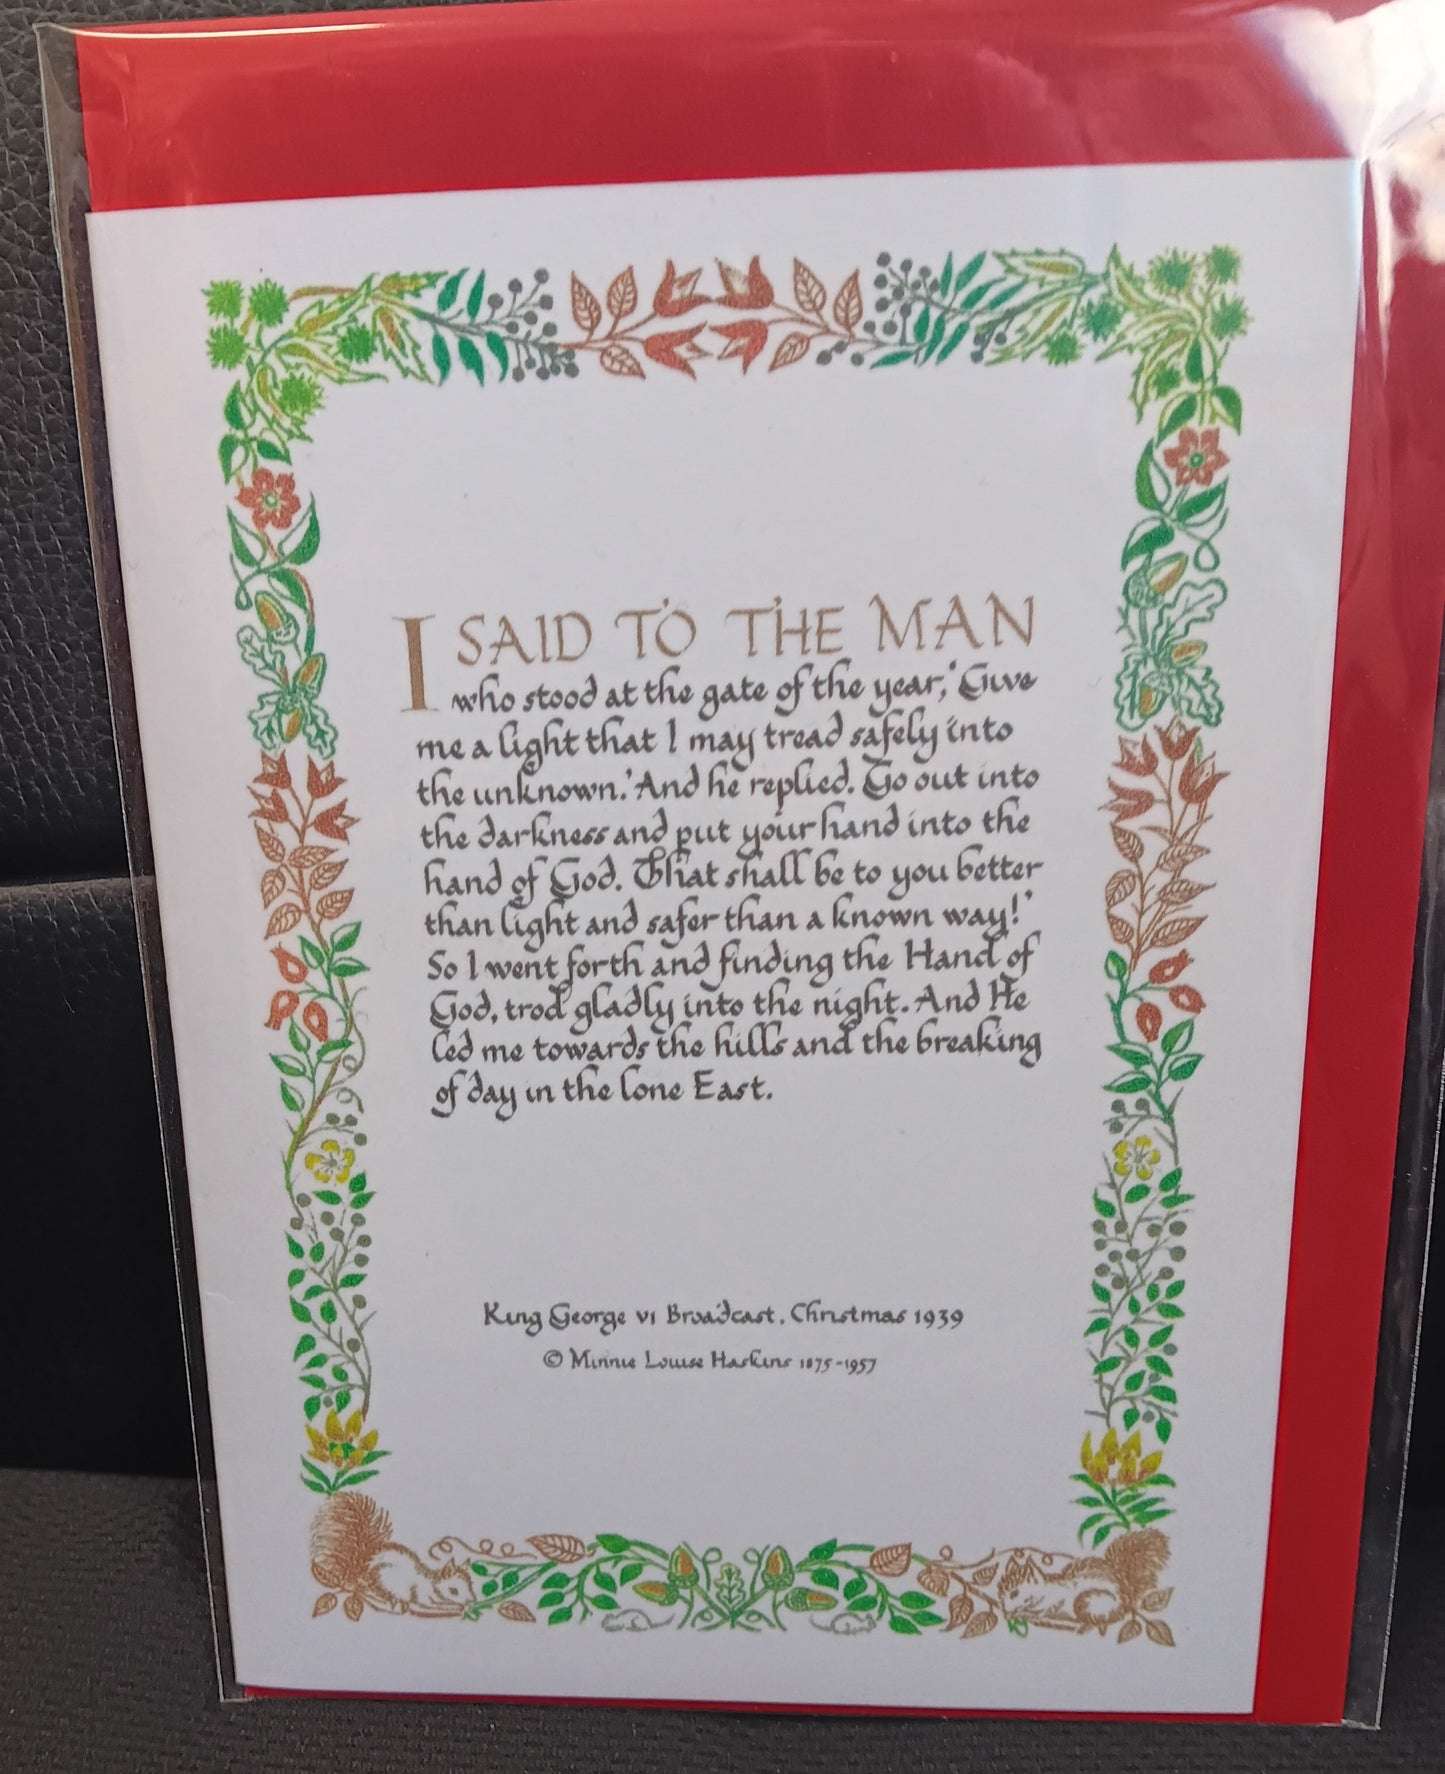 I SAID TO THE MAN
who stood at the gate of the year, 'Give
me a light that I may tread safely into
the unknown.' And he replied. Go out into
the darkness and put your hand into the
hand of God. That shall be to you better
than light and safer than a known way!'
So I went forth and finding the Hand of
God, trod gladly into the night. And He
led me towards the hills and the breaking
of day in the lone East.
King George VI Broadcast, Christmas 1939
© Minnie Louise Haskins 1875-1957